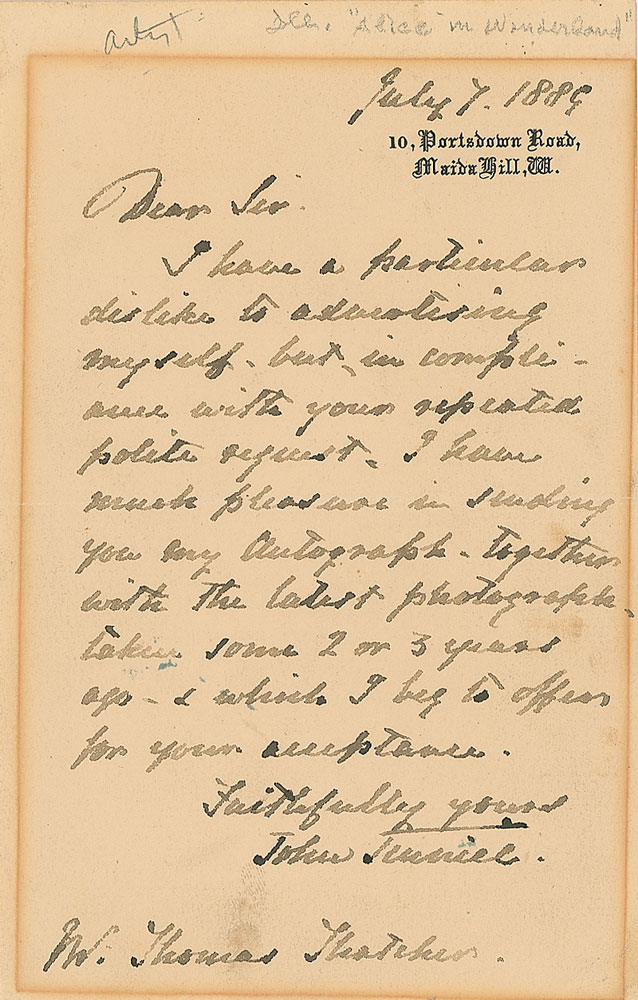 artist Ill. "Alice in Wonderland"
July 7. 1889
10, Portsdown Road,
Maida Hill, W.
Dear Sir.
I have a particular
dislike to advertising
myself. but, in compli-
ance with your repeated
polite request. I have
much pleasure in sending
you my Autograph. together
with the latest photograph.
taken some 2 or 3 years
ago - & which I beg to offer
for your acceptance.
Faithfully yours
John Tenniel.
Mr. Thomas Thatcher.